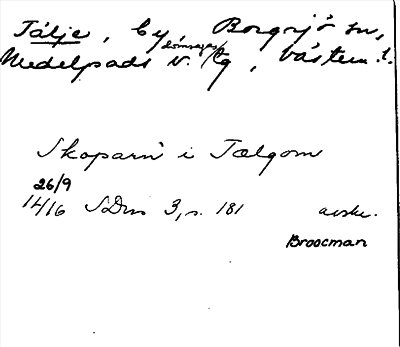 Tälje, by, Borgsjö sn,
Medelpads v. domsagas tg, Västern. l.
Skoparn i Tælgom
26/9
1416 SDns 3, s. 181 avskr.
Broocman